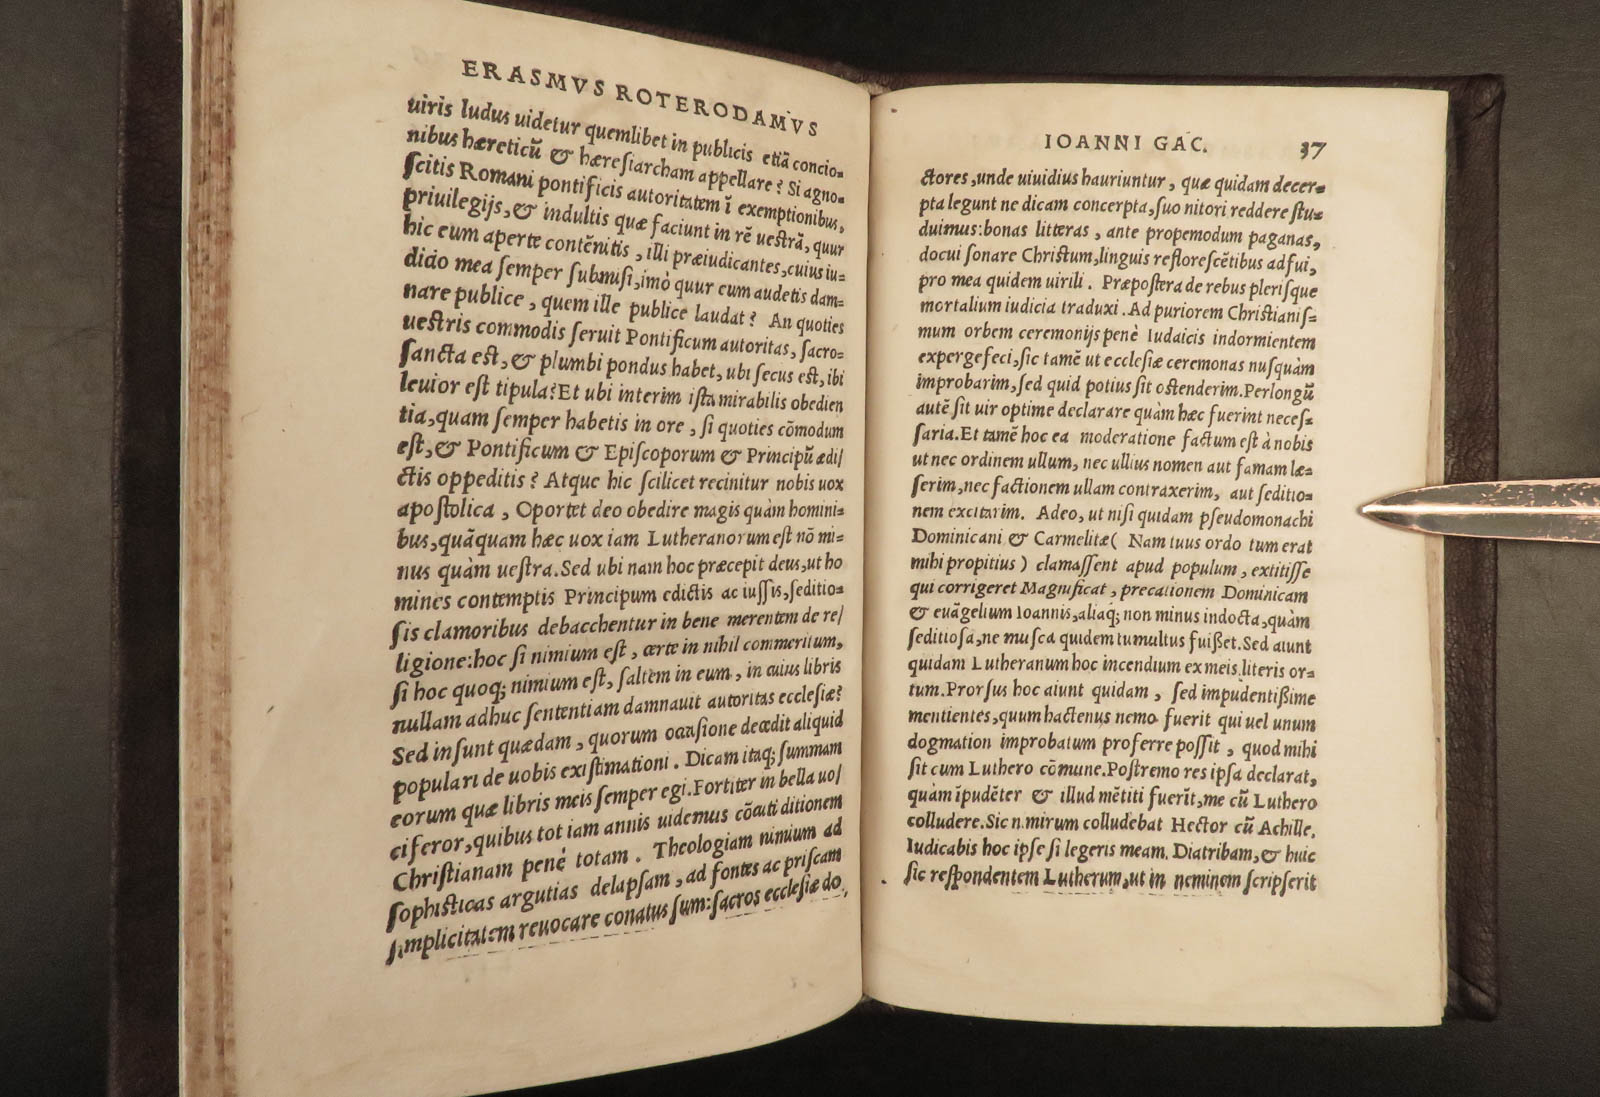 ERASMVS ROTERODAMVS
uiris ludus uidetur quemlibet in publicis etiã concio-
nibus hæreticũ & hæresiarcham appellare? Si agno-
scitis Romani pontificis autoritatem ĩ exemptionibus,
priuilegijs, & indultis quæ faciunt in rẽ uestrã, quur
hic eum aperte contẽnitis, illi præiudicantes, cuius iu-
dicio mea semper submisi, imò quur cum audetis dam-
nare publice, quem ille publice laudat? An quoties
uestris commodis seruit Pontificum autoritas, sacro-
sancta est, & plumbi pondus habet, ubi secus est, ibi
leuior est tipula? Et ubi interim ista mirabilis obedien
tia, quam semper habetis in ore, si quoties cõmodum
est, & Pontificum & Episcoporum & Principũ ædi/
ctis oppeditis? Atque hic scilicet recinitur nobis uox
apostolica, Oportet deo obedire magis quàm homini-
bus, quãquam hæc uox iam Lutheranorum est nõ mi-
nus quàm uestra. Sed ubi nam hoc præcepit deus, ut ho
mines contemptis Principum edictis ac iussis, seditio-
sis clamoribus debacchentur in bene merentem de re/
ligione: hoc si nimium est, certe in nihil commeritum,
si hoc quoq; nimium est, saltem in eum, in cuius libris
nullam adhuc sententiam damnauit autoritas ecclesiæ?
Sed insunt quædam, quorum occasione decedit aliquid
populari de uobis existimationi. Dicam itaq; summam
eorum quæ libris meis semper egi. Fortiter in bella uo/
ciferor, quibus tot iam annis uidemus cõcuti ditionem
Christianam penè totam. Theologiam nimium ad
sophisticas argutias delapsam, ad fontes ac priscam
simplicitatem reuocare conatus sum: sacros ecclesiæ do
IOANNI GAC. 37
ctores, unde uiuidius hauriuntur, quæ quidam decer-
pta legunt ne dicam concerpta, suo nitori reddere stu-
duimus: bonas litteras, ante propemodum paganas,
docui sonare Christum, linguis reflorescẽtibus adfui,
pro mea quidem uirili. Præpostera de rebus plerisque
mortalium iudicia traduxi. Ad puriorem Christianis-
mum orbem ceremonijs penè Iudaicis indormientem
expergefeci, sic tamẽ ut ecclesiæ ceremonas nusquàm
improbarim, sed quid potius sit ostenderim. Perlongũ
autẽ sit uir optime declarare quàm hæc fuerint neces-
saria. Et tamẽ hoc ea moderatione factum est à nobis
ut nec ordinem ullum, nec ullius nomen aut famam læ-
serim, nec factionem ullam contraxerim, aut seditio-
nem excitarim. Adeo, ut nisi quidam pseudomonachi
Dominicani & Carmelitæ ( Nam tuus ordo tum erat
mihi propitius ) clamassent apud populum, extitisse
qui corrigeret Magnificat, precationem Dominicam
& euãgelium Ioannis, aliaq; non minus indocta, quàm
seditiosa, ne musca quidem tumultus fuißet. Sed aiunt
quidam Lutheranum hoc incendium ex meis literis or-
tum. Prorsus hoc aiunt quidam, sed impudentißime
mentientes, quum hactenus nemo fuerit qui uel unum
dogmation improbatum proferre possit, quod mihi
sit cum Luthero cõmune. Postremo res ipsa declarat,
quàm ĩpudẽter & illud mẽtiti fuerĩt, me cũ Luthero
colludere. Sic n. mirum colludebat Hector cũ Achille.
Iudicabis hoc ipse si legeris meam. Diatribam, & huic
sic respondentem Lutherum, ut in neminem scripserit